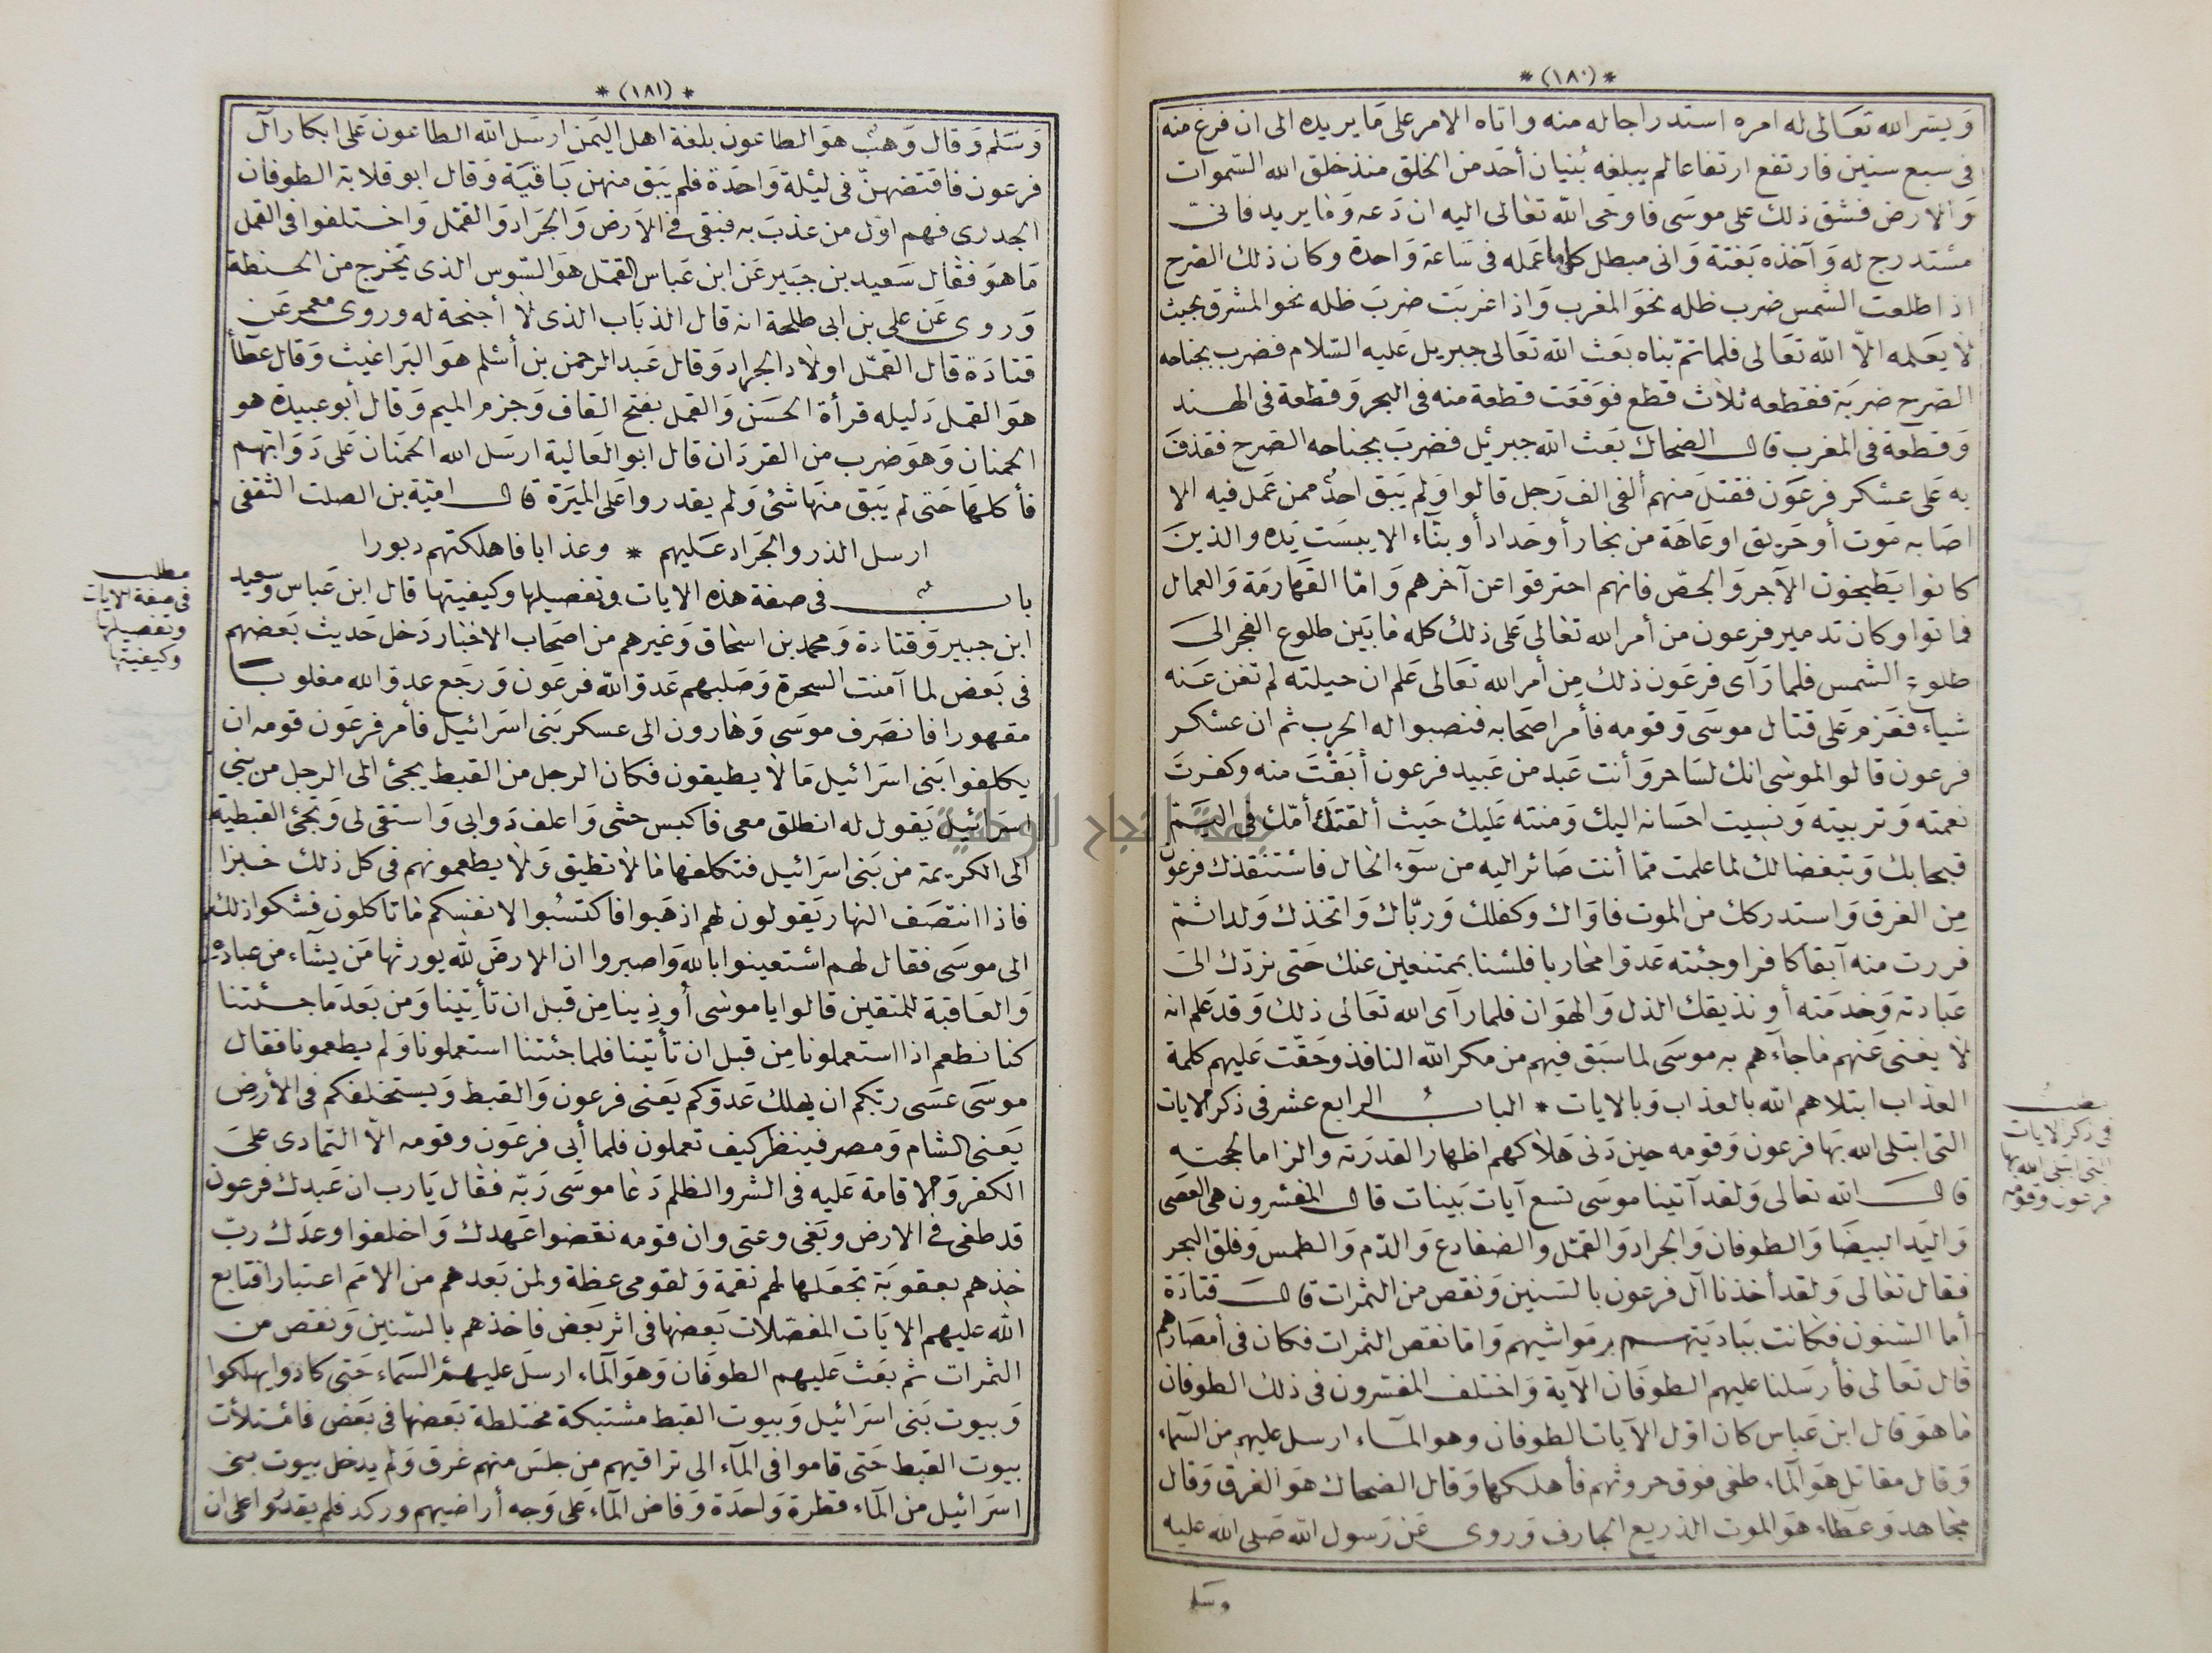 * (١٨٠) *
وَيسّر الله تعَالى له امره استدراجا له منه واتاه الامر على مَا يريده الى ان فرغ منه
فى سبع سنين فارتفع ارتفاعا لم يبلغه بُنيان أحَد من الخلق منذ خلق الله السّموات
وَالارض فشق ذلك على موسَى فاوحَى الله تعالى اليه ان دَعه وَما يريد فانىّ
مسْتدرج له وَآخذه بَغتة وَانى مبطل كل ما عمَله فى سَاعة وَاحدة وكان ذلك الصّرح
اذا طلعت الشمس ضرب ظله نحوَ المغرب وَاذا غربَت ضربَ ظله نحو المشرق بحيث
لا يعَلمه الاّ الله تعَالى فلما تمّ بناه بعَث الله تعَالى جبريل عَليه السّلام فضرب بجناحه
الصّرح ضربَة فقطعه ثلاث قطع فوَقعَت قطعة منه فى البحر وَقطعة فى الهند
وَقطعة فى المغرب قال الضحاك بعَث الله جبرئيل فضربَ بجناحه الصّرح فقذفَ
به عَلى عسْكر فرعَون فقتلَ منهم ألفى الف رَجل قالوا وَلم يَبق احدٌ ممن عَمل فيه الا
اصَابه مَوت أو حَريق او عَاهَة من نجار أو حَداد أو بنَّاء الا يبسَت يَده والذينَ
كانوا يَطبخون الآجر وَالجصّ فانهم احترقوا عن آخرهم وَامّا القهَارمَة وَالعمال
فماتوا وكان تدمير فرعون من أمر الله تعالى عَلى ذلك كله مَا بَين طلوع الفجر الىَ
طلوع الشمس فلما رَآى فرعَون ذلك مِن أمر الله تعَالى عَلم ان حيلته لم تغن عَنه
شياء فعَزم عَلى قتال موسَى وَقومه فأمر اصحَابه فنصبوا له الحرب ثم ان عسْكر
فرعون قالوا لموسَى انك لسَاحر وَأنت عَبد من عَبيد فرعون أبَقْتَ منه وكفرتَ
نعمته وَتربيته وَنسِيت احسَانه اليك وَمنته عَليك حَيث ألقتك أمّك فى اليَمّ
قبحا بك وَتبغضا لك لما علمت ممّا أنت صَائر اليه من سوَء الحال فاسْتنقذك فرعون
مِن الغرق وَاستدركك من الموت فاوَاك وكفلك وَربّاك وَاتخذك وَلدا ثمّ
فررت منه آبقا كافرا وجئته عَدوّا محاربا فلسْنا بممتنعين عنك حَتى نردّك الىَ
عبَادته وَخدمَته أو نذيقك الذل وَالهوَان فلما رَآى الله تعَالى ذلك وَقد عَلم انه
لا يغنى عَنهم مَا جاءَهم به موسَى لما سبَق فيهم من مكر الله النافذ وحَقت عَليهم كلمة
العذاب ابتلاهم الله بالعذاب وَبالايات * البابُ الرابع عشر فى ذكر الايات
التى ابتلى الله بهَا فرعون وَقومه حين دَنى هَلاكهم اظهارا لقدرَته والزاما لحجته
قال الله تعالى وَلقد آتينا موسَى تسع آيات بَينات قال المفسّرون هى العَصى
وَاليَد البيضَا وَالطوفان وَالجراد وَالقمّل وَالضفادع وَالدّم وَالطمس وَفلق البحر
فقال تعَالى وَلقد أخذنا آل فرعون بالسّنين وَنقص من الثمرات قال قتادَة
أما السّنون فكانت ببَاديَتهم ومَواشيهم وَامّا نقص الثمرات فكان فى أمصَارهم
قال تعَالى فأرسَلنا عليهم الطوفَان الآية وَاختلف المفسّرون فى ذلك الطوفان
مَا هوَ قال ابن عَباس كان اوّل الآيات الطوفان وهو المَاء ارسل عليهم من السّماء
وَقال مقاتل هوَ الماء طغى فوق حروثهم فأهلكها وَقال الضحاك هوَ الغرق وَقال
مجَاهد وَعطاء هوَ الموت الذريع الجارف وَروى عَن رَسول الله صَلى الله عليه
وسلم
مطلب
فى ذكر الايات
التى ابتلى الله بها
فرعون وقومه
* (١٨١) *
وَسَلم وَقال وَهبٌ هوَ الطاعون بلغة اهل اليَمن ارسَل الله الطاعون عَلى ابكار آل
فرعون فاقتضهنّ فى ليْلة وَاحدَة فلم يَبق منهن بَاقيَة وَقال ابو قلابة الطوفان
الجدرى فهم اوّل من عذبَ به فبَقى فى الارَض وَالجَراد وَالقمّل وَاختلفوا فى القمل
مَا هوَ فقال سَعيد بن جبَير عَن ابن عَباس القمّل هوَ السّوس الذى يَخرج من الحنطة
وَروى عَن على بن ابى طلحة انه قال الذبَاب الذى لا أجنحة له وروى معمر عَن
قتادَة قال القمّل اولاد الجراد وَقال عَبد الرحمن بن أسْلم هوَ البرَاغيث وَقال عطاء
هوَ القمل دَليله قرأة الحسَن وَالقمل بفتح القاف وَجزم الميم وَقال أبو عبيدة هو
الحمنان وَهوَ ضرب من القردَان قال ابو العَالية ارسَل الله الحمنان عَلى دَوَابّهم
فأكلهَا حَتى لم يَبق منهَا شئ وَلم يقدروا عَلى الميرَة قال اميّة بن الصلت الثقفى
ارسل الذر والجرَاد عَليهم * وعذابا فاهلكتهم دبورا
بابٌ فى صفة هذه الايات وتفصيلها وكيفيتها قال ابن عَباس وسعيد
ابن جبير وَقتادة وَمحمد بن اسحاق وَغيرهم من اصحَاب الاخبار دَخل حَديث بَعضهم
فى بَعض لما آمنت السحرة وَصَلبهم عَدوّ الله فرعَون وَرجَع عدوّ الله مغلوبا
مقهورا فانصَرف موسَى وَهارون الى عسكر بَنى اسرَائيل فأمر فرعَون قومه ان
يكلفوا بَنى اسرائيل مَا لا يطيقون فكان الرجل من القبط يجئ الى الرجل من بنى
اسرَائيل يَقول له انطلق معى فاكبس حشى وَاعلف دَوابى وَاستقى لى وَتجئ القبطية
الى الكريمة من بَنى اسرَائيل فتكلفها مَا لا تطيق وَلا يطعمونهم فى كل ذلك خبزا
فاذا انتصَف النهار يَقولون لهم اذهَبوا فاكتسْبوا لانفسكم مَا تاكلون فشكوا ذلك
الى موسَى فقال لهم اسْتعينوا بالله وَاصبروا ان الارضَ لله يورثها مَن يشاء من عباده
وَالعَاقبة للمتقين قالوا يا موسَى أوذينا مِن قبل ان تأتِينا وَمن بعَد مَا جئتنا
كنا نطعم اذا استعملونا مِن قبل ان تأتيَنا فلما جئتنا استعملونا وَلم يطعمونا فقال
موسَى عسَى ربّكم ان يهلك عَدوّكم يَعنى فرعون وَالقبط وَيستخلفكم فى الأرض
يَعنى الشام وَمصر فينظر كيف تعملون فلما أبى فرعَون وقومه الاّ التمادى على
الكفر وَالاقامة عَليه فى الشر والظلم دَعا موسَى رَبّه فقال يَا رب ان عَبدك فرعون
قد طغى فى الارض وبَغى وعتى وان قومه نقضوا عَهدك وَاخلفوا وعدَك ربّ
خذهم بعقوبَة تجعَلها لهم نقمة وَلقومى عظة ولمن بَعدهم من الامَم اعتبارا فتابع
الله عليهم الايَات المفصّلات بَعضها فى اثر بَعض فاخذهم بالسّنين وَنقص من
الثمرات ثم بعَث عَليهم الطوفَان وَهوَ الماء ارسلَ عليهم السَّماء حَتى كادوا يهلكوا
وَبيوت بَنى اسرَائيل وَبيوت القبط مشتبكة مختلطة بَعضها فى بَعض فامْتلأت
بيوت القبط حَتى قاموا فى المآء الى تراقيهم من جلسَ منهم غرق وَلم يدخل بيوت بنى
اسرَائيل من الماء قطرة وَاحدَة وَفاض الماء عَلى وَجه أراضيهم وركد فلم يقدروا على ان
مطلب
فى صفة الايات
وتفصيلها
وكيفيتها
جامعة النجاح الوطنية